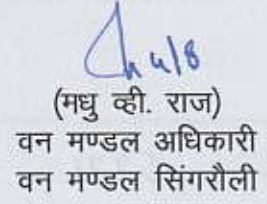 4/8
(मधु व्ही. राज)
वन मण्डल अधिकारी
वन मण्डल सिंगरौली